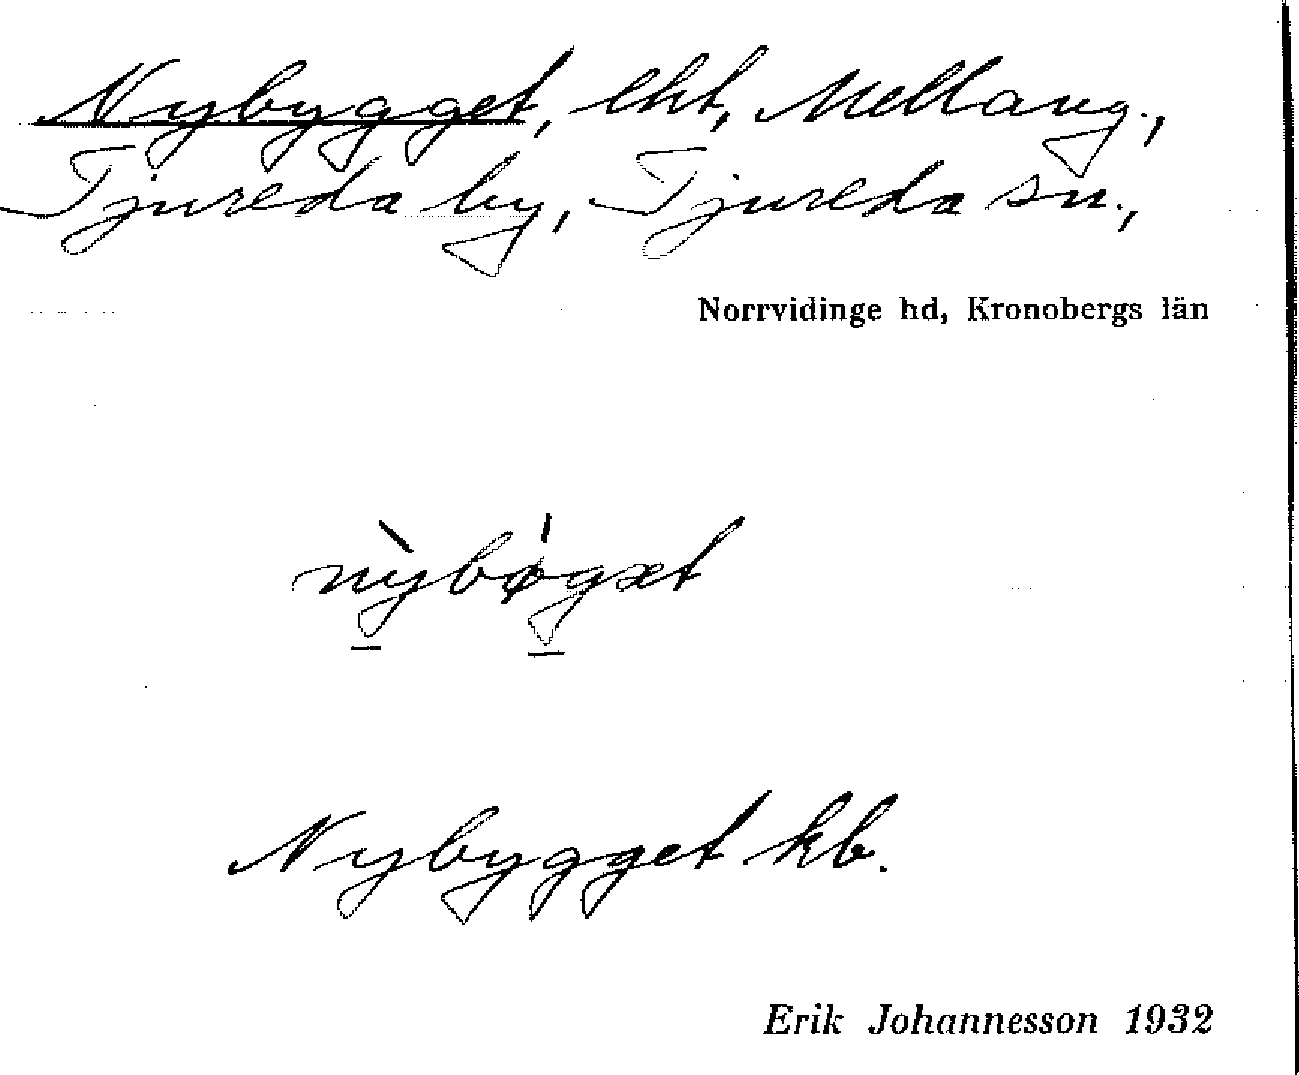 Nybygget, lht, Mellang.,
Tjureda by, Tjureda sn.,
Norrvidinge hd, Kronobergs län
nỳbøgæt
Nybygget kb.
Erik Johannesson 1932